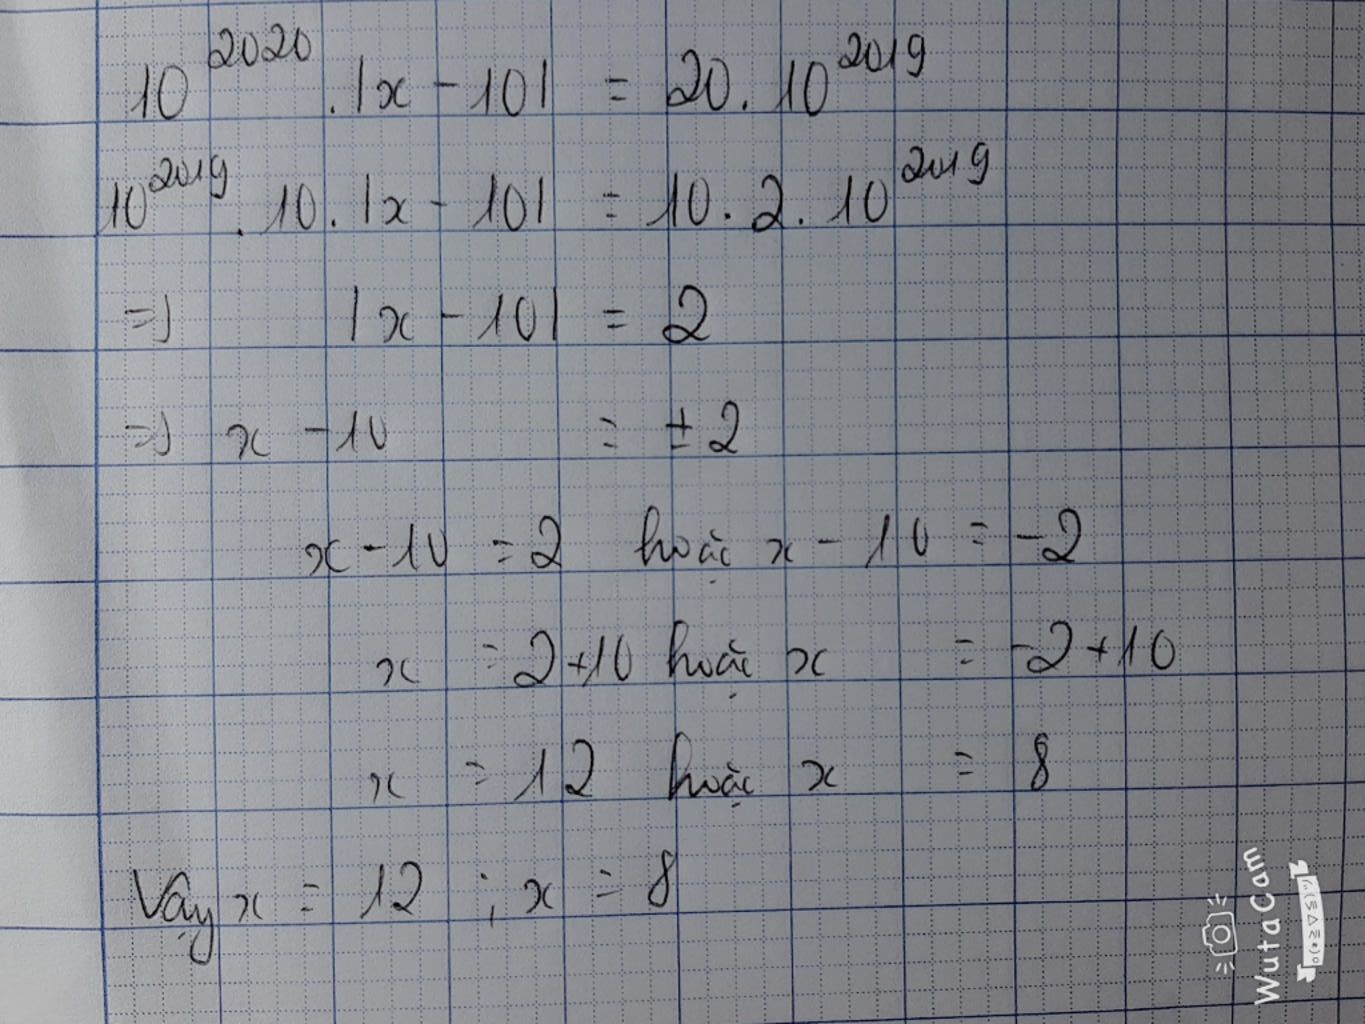 10^2020 . |x - 10| = 20 . 10^2019
10^2019 . 10 . |x - 10| = 10 . 2 . 10^2019
=> |x - 10| = 2
=> x - 10 = ± 2
x - 10 = 2 hoặc x - 10 = -2
x = 2+10 hoặc x = -2+10
x = 12 hoặc x = 8
Vậy x = 12 ; x = 8
WutaCam